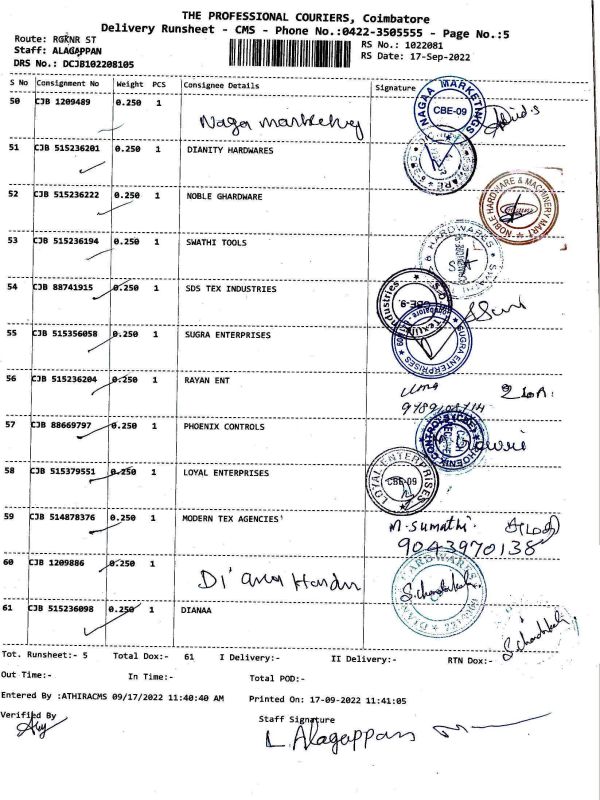 THE PROFESSIONAL COURIERS, Coimbatore
Delivery Runsheet - CMS - Phone No.:0422-3505555 - Page No.:5
Route: RGKNR ST
Staff: ALAGAPPAN
DRS No.: DCJB102208105
RS No.: 1022081
RS Date: 17-Sep-2022
S No Consignment No Weight PCS Consignee Details Signature
50 CJB 1209489 0.250 1 Naga Marketing
NAGAA MARKETINGS CBE-09
51 CJB 515236201 0.250 1 DIANITY HARDWARES
52 CJB 515236222 0.250 1 NOBLE GHARDWARE
NOBLE HARDWARE & MACHINERY MART
53 CJB 515236194 0.250 1 SWATHI TOOLS
54 CJB 88741915 0.250 1 SDS TEX INDUSTRIES
CBE-9.
55 CJB 515356058 0.250 1 SUGRA ENTERPRISES
SUGRA ENTERPRISES
56 CJB 515236204 0.250 1 RAYAN ENT
uma
57 CJB 88669797 0.250 1 PHOENIX CONTROLS
PHOENIX CONTROLS (CBE)
58 CJB 515379551 0.250 1 LOYAL ENTERPRISES
LOYAL ENTERPRISES CBE-09
59 CJB 514878376 0.250 1 MODERN TEX AGENCIES
M. Sumathi.
9043970138
60 CJB 1209886 0.250 1
61 CJB 515236098 0.250 1 DIANAA
Tot. Runsheet:- 5 Total Dox:- 61 I Delivery:- II Delivery:- RTN Dox:-
Out Time:- In Time:- Total POD:-
Entered By :ATHIRACMS 09/17/2022 11:40:40 AM Printed On: 17-09-2022 11:41:05
Verified By Staff Signature
L. Alagappan